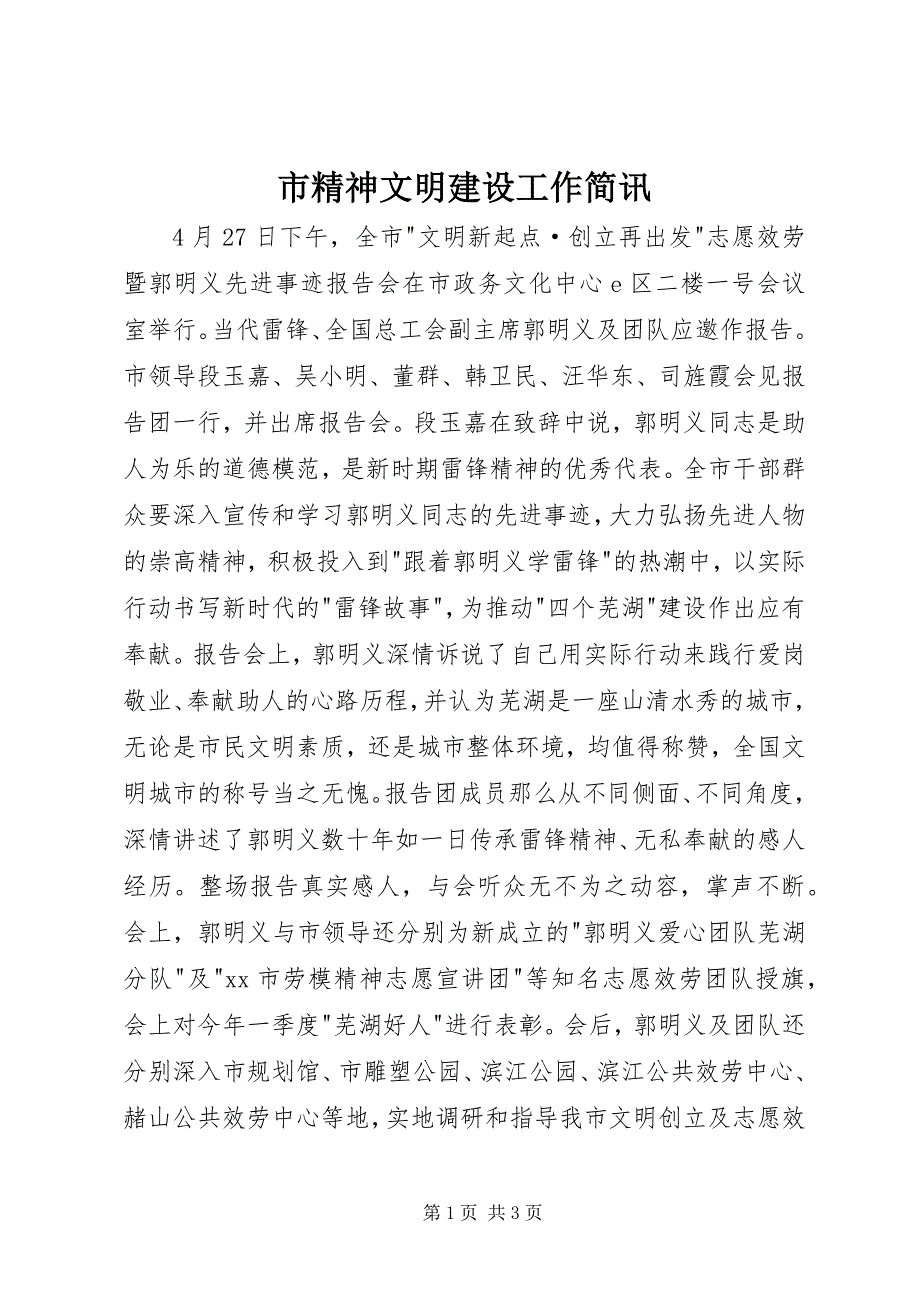 市精神文明建设工作简讯
4 月 27 日下午，全市"文明新起点·创立再出发"志愿效劳
暨郭明义先进事迹报告会在市政务文化中心 e 区二楼一号会议
室举行。当代雷锋、全国总工会副主席郭明义及团队应邀作报告。
市领导段玉嘉、吴小明、董群、韩卫民、汪华东、司旌霞会见报
告团一行，并出席报告会。段玉嘉在致辞中说，郭明义同志是助
人为乐的道德模范，是新时期雷锋精神的优秀代表。全市干部群
众要深入宣传和学习郭明义同志的先进事迹，大力弘扬先进人物
的崇高精神，积极投入到"跟着郭明义学雷锋"的热潮中，以实际
行动书写新时代的"雷锋故事"，为推动"四个芜湖"建设作出应有
奉献。报告会上，郭明义深情诉说了自己用实际行动来践行爱岗
敬业、奉献助人的心路历程，并认为芜湖是一座山清水秀的城市，
无论是市民文明素质，还是城市整体环境，均值得称赞，全国文
明城市的称号当之无愧。报告团成员那么从不同侧面、不同角度，
深情讲述了郭明义数十年如一日传承雷锋精神、无私奉献的感人
经历。整场报告真实感人，与会听众无不为之动容，掌声不断。
会上，郭明义与市领导还分别为新成立的"郭明义爱心团队芜湖
分队"及"xx 市劳模精神志愿宣讲团"等知名志愿效劳团队授旗，
会上对今年一季度"芜湖好人"进行表彰。会后，郭明义及团队还
分别深入市规划馆、市雕塑公园、滨江公园、滨江公共效劳中心、
赭山公共效劳中心等地，实地调研和指导我市文明创立及志愿效
第 1 页 共 3 页